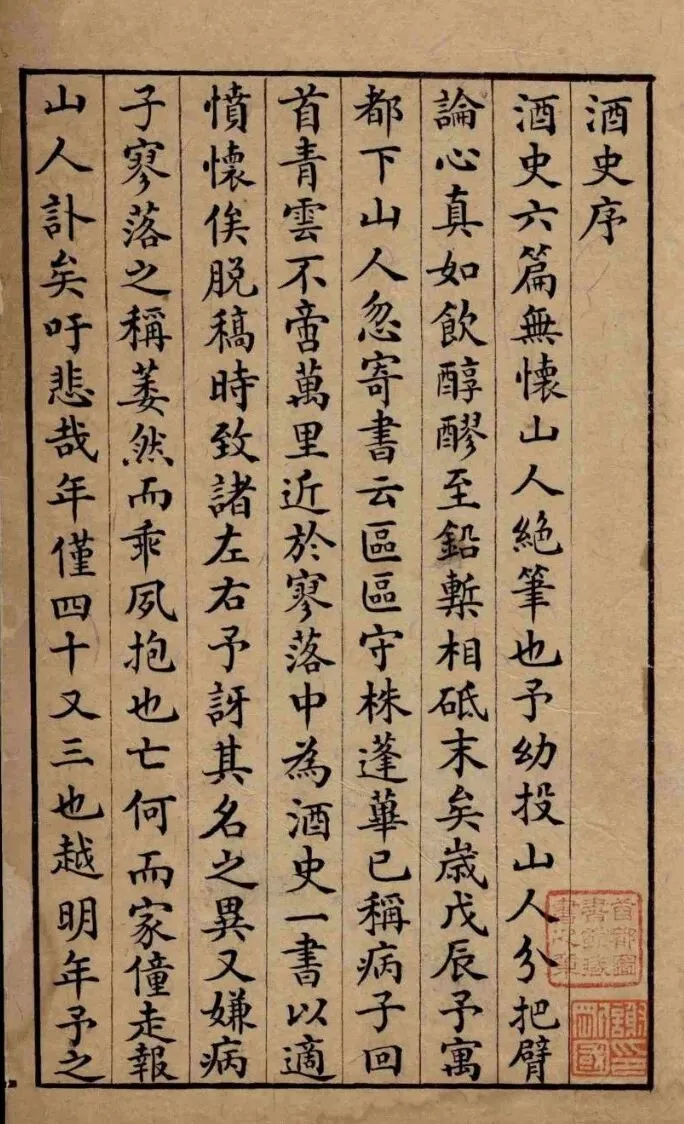 酒史序
酒史六篇無懷山人絶筆也予幼投山人分把臂
論心真如飲醇醪至鉛槧相砥末矣歲戊辰予寓
都下山人忽寄書云區區守株蓬蓽已稱病子回
首青雲不啻萬里近於寥落中為酒史一書以適
憤懷俟脫稿時致諸左右予訝其名之異又嫌病
子寥落之稱萎然而乖夙抱也亡何而家僮走報
山人訃矣吁悲哉年僅四十又三也越明年予之
首都圖
書館藏
書之章